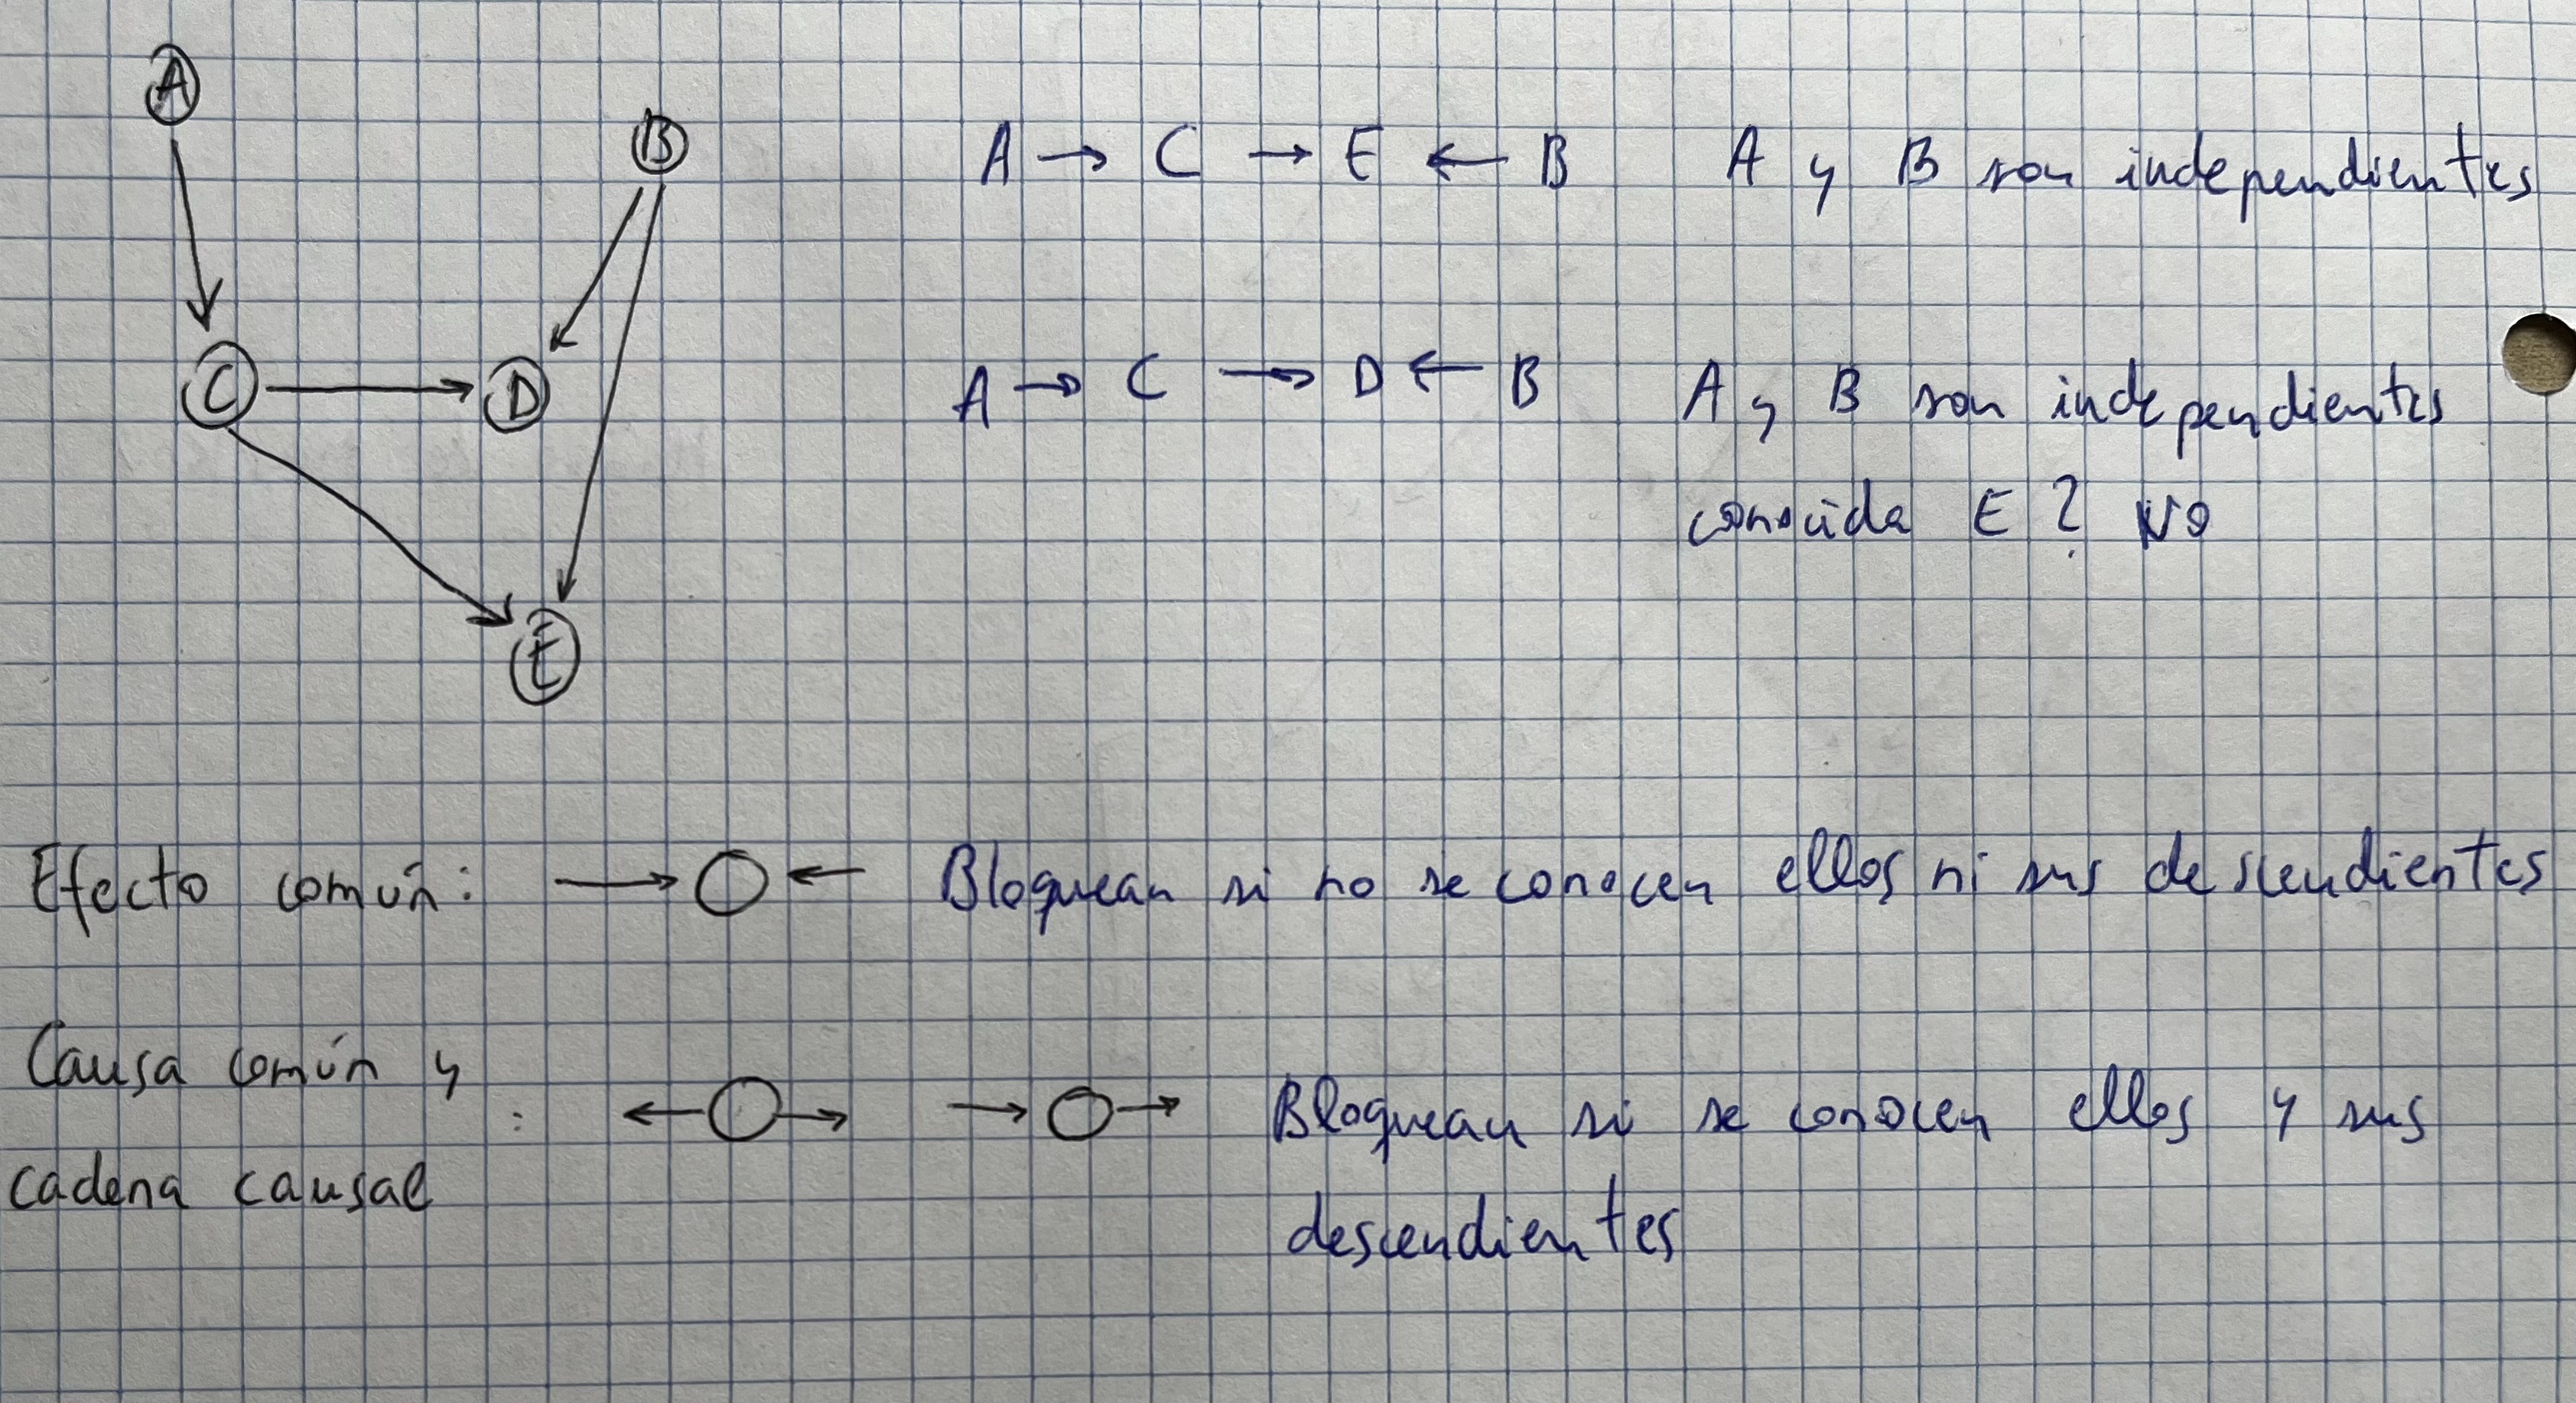 A
B
C
D
E
A → C → E ← B A y B son independientes
A → C → D ← B A y B son independientes
conocida E ? NO
Efecto común: → ○ ← Bloquean si no se conocen ellos ni sus descendientes
Causa común y
: ← ○ → → ○ → Bloquean si se conocen ellos y sus
cadena causal
descendientes